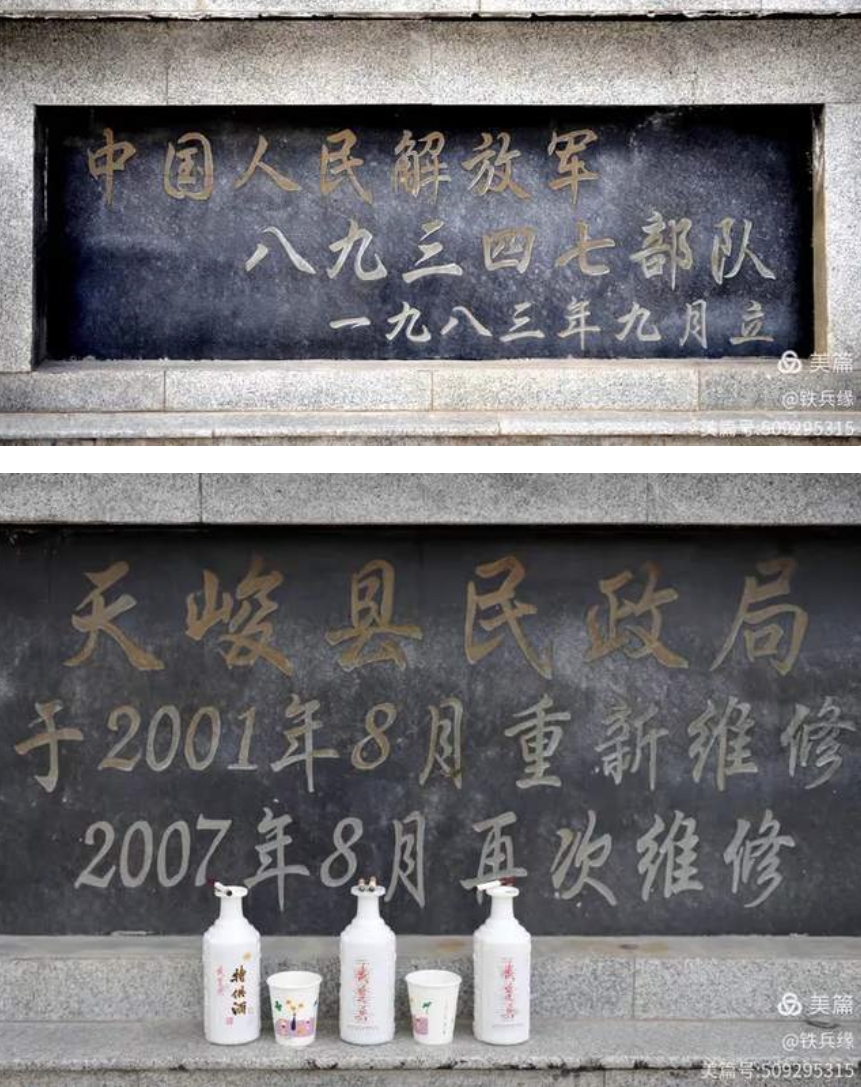 中国人民解放军
八九三四七部队
一九八三年九月立
美篇
@铁兵缘
美篇号:509295315
天峻县民政局
于2001年8月重新维修
2007年8月再次维修
特供酒
美篇
@铁兵缘
美篇号:509295315